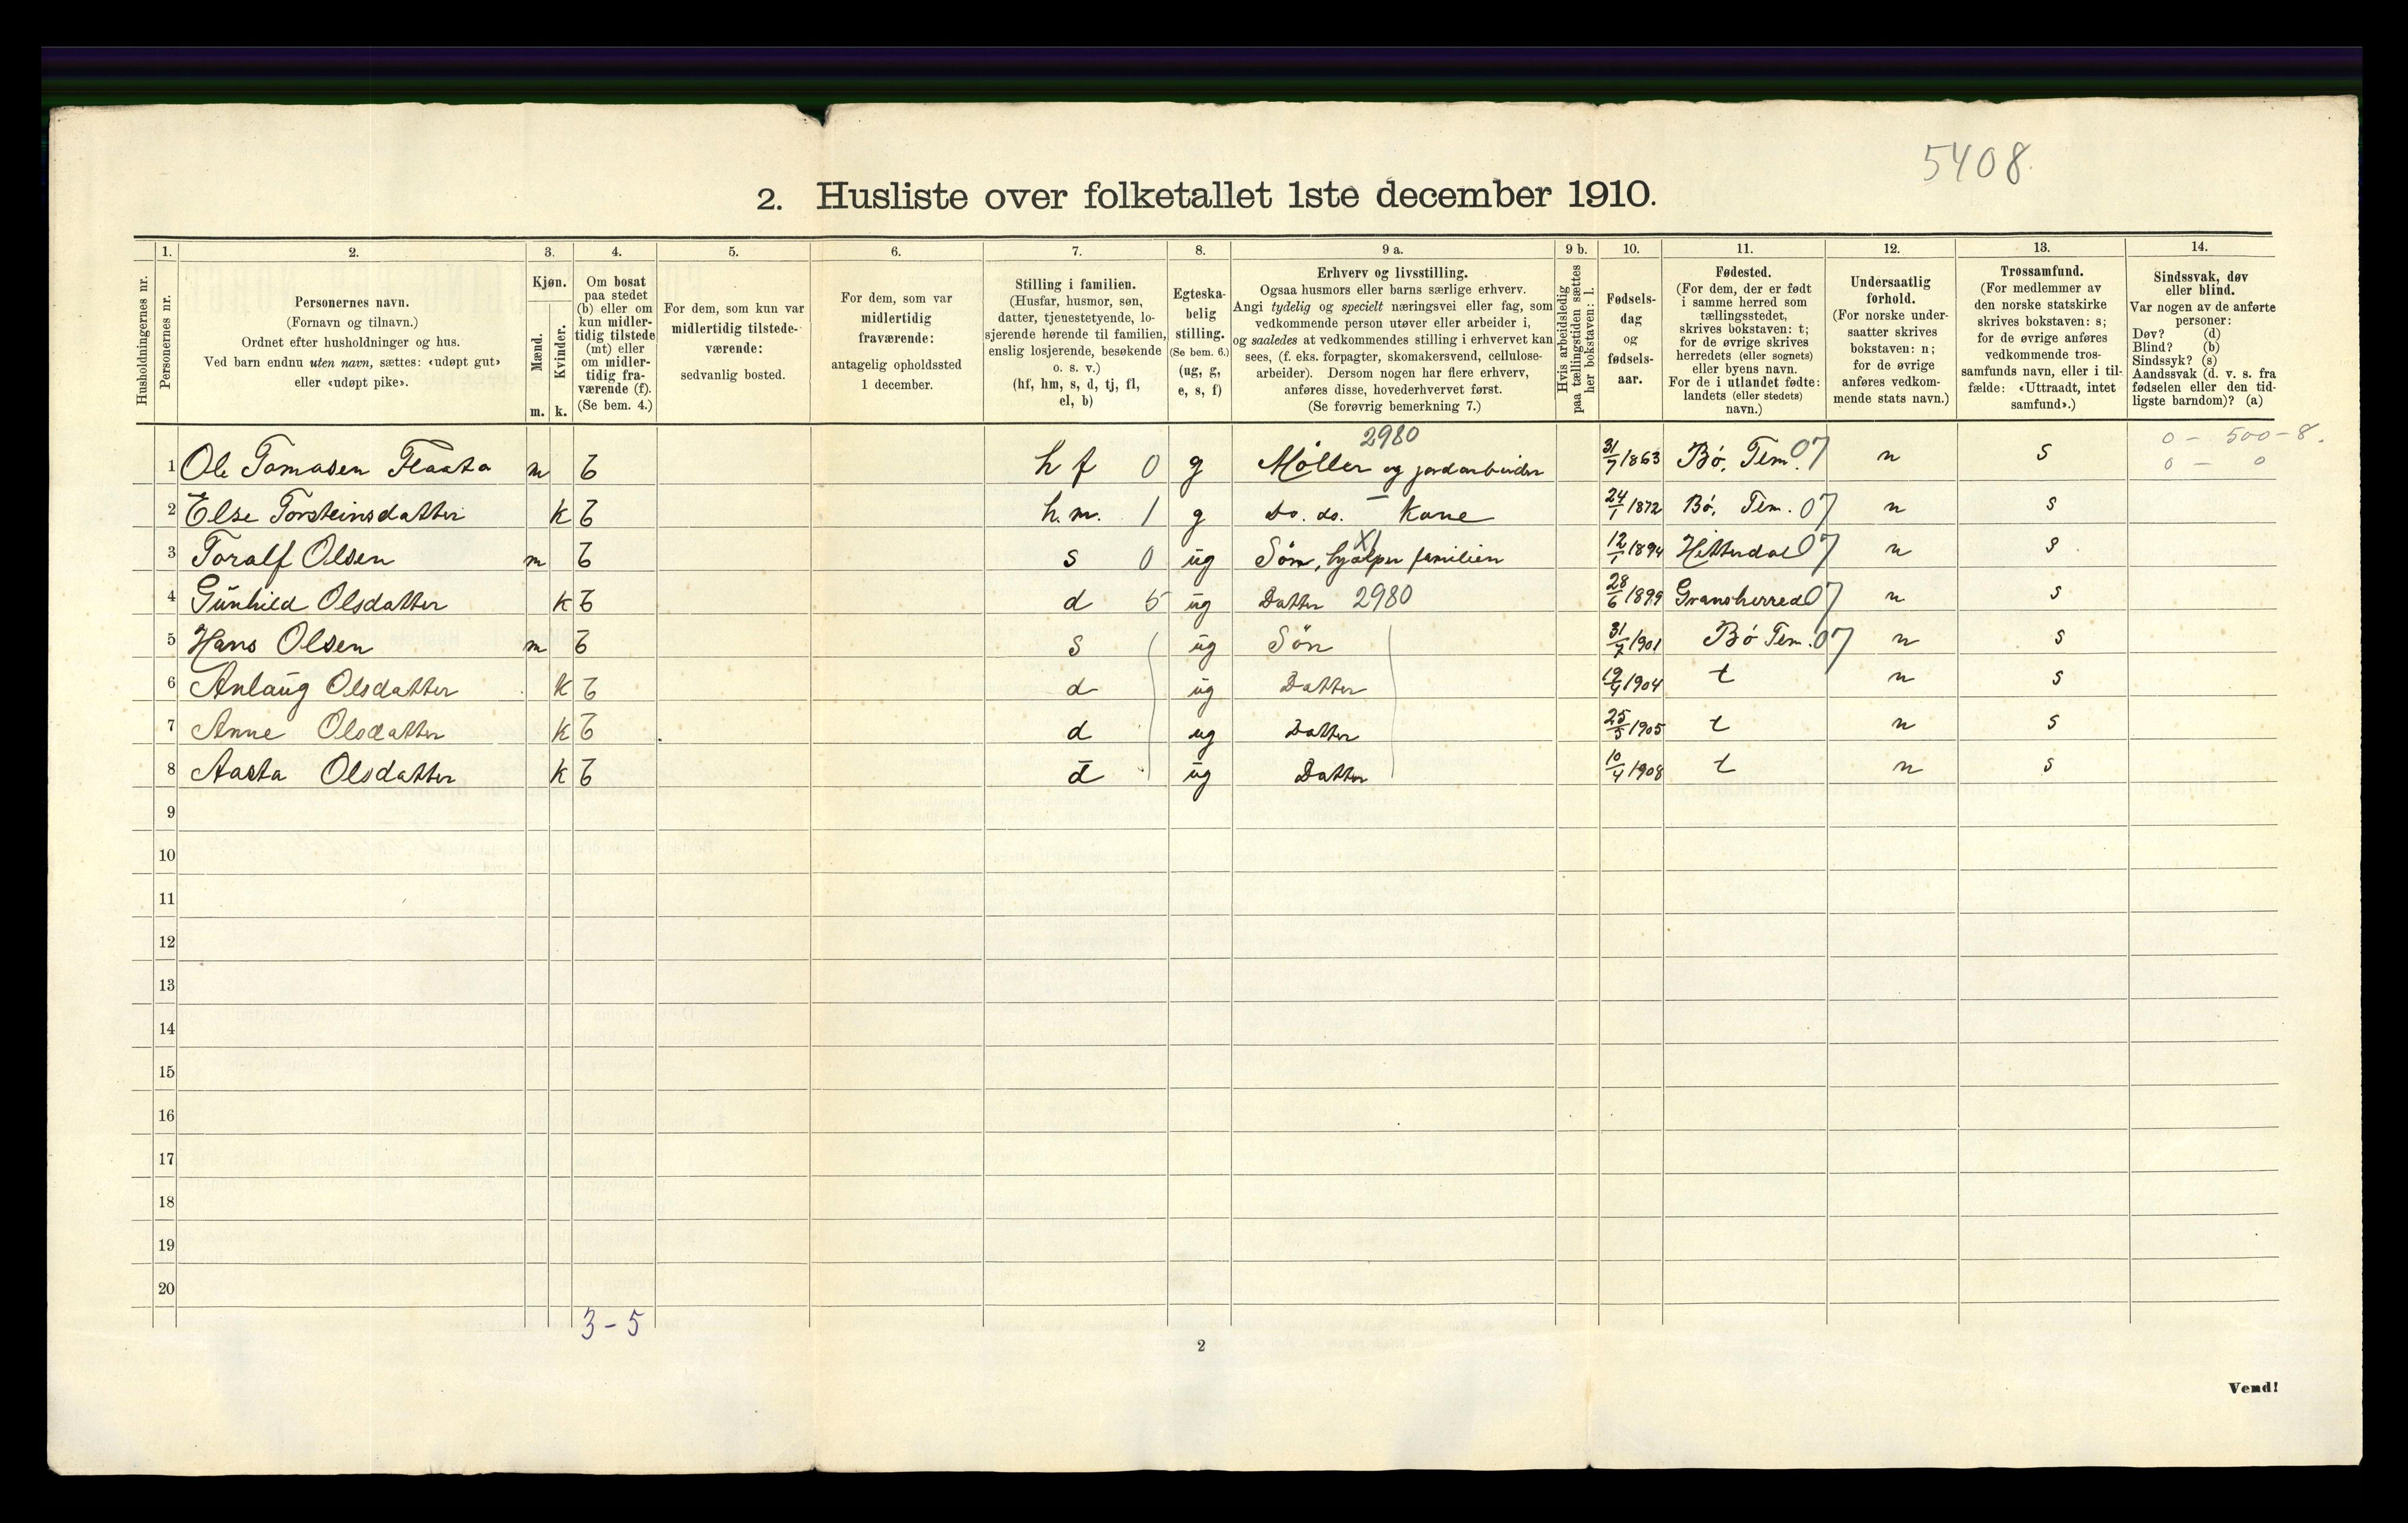 5408.
2. Husliste over folketallet 1ste december 1910.
Husholdningernes nr.
1. Personernes nr.
2. Personernes navn.
(Fornavn og tilnavn.)
Ordnet efter husholdninger og hus.
Ved barn endnu uten navn, sættes: «udøpt gut»
eller «udøpt pike».
3. Kjøn.
Mænd. m.
Kvinder. k.
4. Om bosat
paa stedet
(b) eller om
kun midler-
tidig tilstede
(mt) eller
om midler-
tidig fra-
værende (f).
(Se bem. 4.)
5. For dem, som kun var
midlertidig tilstede-
værende:
sedvanlig bosted.
6. For dem, som var
midlertidig
fraværende:
antagelig opholdssted
1 december.
7. Stilling i familien.
(Husfar, husmor, søn,
datter, tjenestetyende, lo-
sjerende hørende til familien,
enslig losjerende, besøkende
o. s. v.)
(hf, hm, s, d, tj, fl,
el, b)
8. Egteska-
belig
stilling.
(Se bem. 6.)
(ug, g,
e, s, f)
9 a. Erhverv og livsstilling.
Ogsaa husmors eller barns særlige erhverv.
Angi tydelig og specielt næringsvei eller fag, som
vedkommende person utøver eller arbeider i,
og saaledes at vedkommendes stilling i erhvervet kan
sees, (f. eks. forpagter, skomakersvend, cellulose-
arbeider). Dersom nogen har flere erhverv,
anføres disse, hovederhvervet først.
(Se forøvrig bemerkning 7.)
9 b. Hvis arbeidsledig
paa tællingstiden sættes
her bokstaven: l.
10. Fødsels-
dag
og
fødsels-
aar.
11. Fødested.
(For dem, der er født
i samme herred som
tællingsstedet,
skrives bokstaven: t;
for de øvrige skrives
herredets (eller sognets)
eller byens navn.
For de i utlandet fødte:
landets (eller stedets)
navn.)
12. Undersaatlig
forhold.
(For norske under-
saatter skrives
bokstaven: n;
for de øvrige
anføres vedkom-
mende stats navn.)
13. Trossamfund.
(For medlemmer av
den norske statskirke
skrives bokstaven: s;
for de øvrige anføres
vedkommende tros-
samfunds navn, eller i til-
fælde: «Uttraadt, intet
samfund».)
14. Sindssvak, døv
eller blind.
Var nogen av de anførte
personer:
Døv? (d)
Blind? (b)
Sindssyk? (s)
Aandssvak (d. v. s. fra
fødselen eller den tid-
ligste barndom)? (a)
2980 0 - 500-8.
1 Ole Tomasen Flaata m b hf 0 g Møller og jordarbeider 31/7 1863 Bø, Tem. 07 n s 0 - 0
2 Else Torsteinsdatter k b h.m. 1 g do. do. - Kone 24/1 1872 Bø, Tem. 07 n s
3 Toralf Olsen m b s 0 ug Søn, hjælper familien X 12/1 1894 Hitterdal 07 n s
4 Gunhild Olsdatter k b d 5 ug Datter 2980 28/6 1899 Gransherred 07 n s
5 Hans Olsen m b s ug Søn 31/7 1901 Bø Tem. 07 n s
6 Anlaug Olsdatter k b d ug Datter 19/4 1904 t n s
7 Anne Olsdatter k b d ug Datter 25/5 1905 t n s
8 Aasta Olsdatter k b d ug Datter 10/4 1908 t n s
9
10
11
12
13
14
15
16
17
18
19
20
3-5
2
Vend!